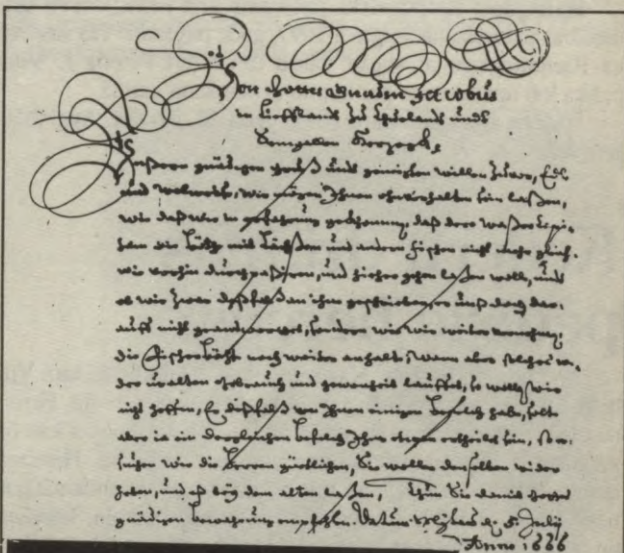 Von Gottes Gnaden Jacobus
in Lieffland zu Churland und
Semgallen Herzogk
Unsern gnädigen gruß und geneigten willen zuvor, Edl
und wir mögen Ihnen ohnverhalten sein laßen,
wie daß wir in erfahrung gekommen, daß der
die mit Lächßen und andern fischen nicht mehr gleich
wie vorhin durchpaßiren, und hieher gehen laßen wolle, und
ob wir zwar deßfalß an ihn geschrieben, er unß doch dar
auff nicht geandtwortet, sondern wie wir weiter vernehmen
die noch weiter anhalte, wann aber solches wi
der uralten gebrauch und gewonheit lauffet, so wollen wir
nicht hoffen, Er dißfalß von Ihnen einigen Befelich habe, solte
aber ja ein dergleichen befelich Ihm ertheilt sein, Er
suchen wir die Herren gütlichen, Sie wollen denselben wider
heben, und eß bey dem alten laßen, Thun Sie damit
gnädigen empfehlen. Datum d. 5. July
Anno 1666